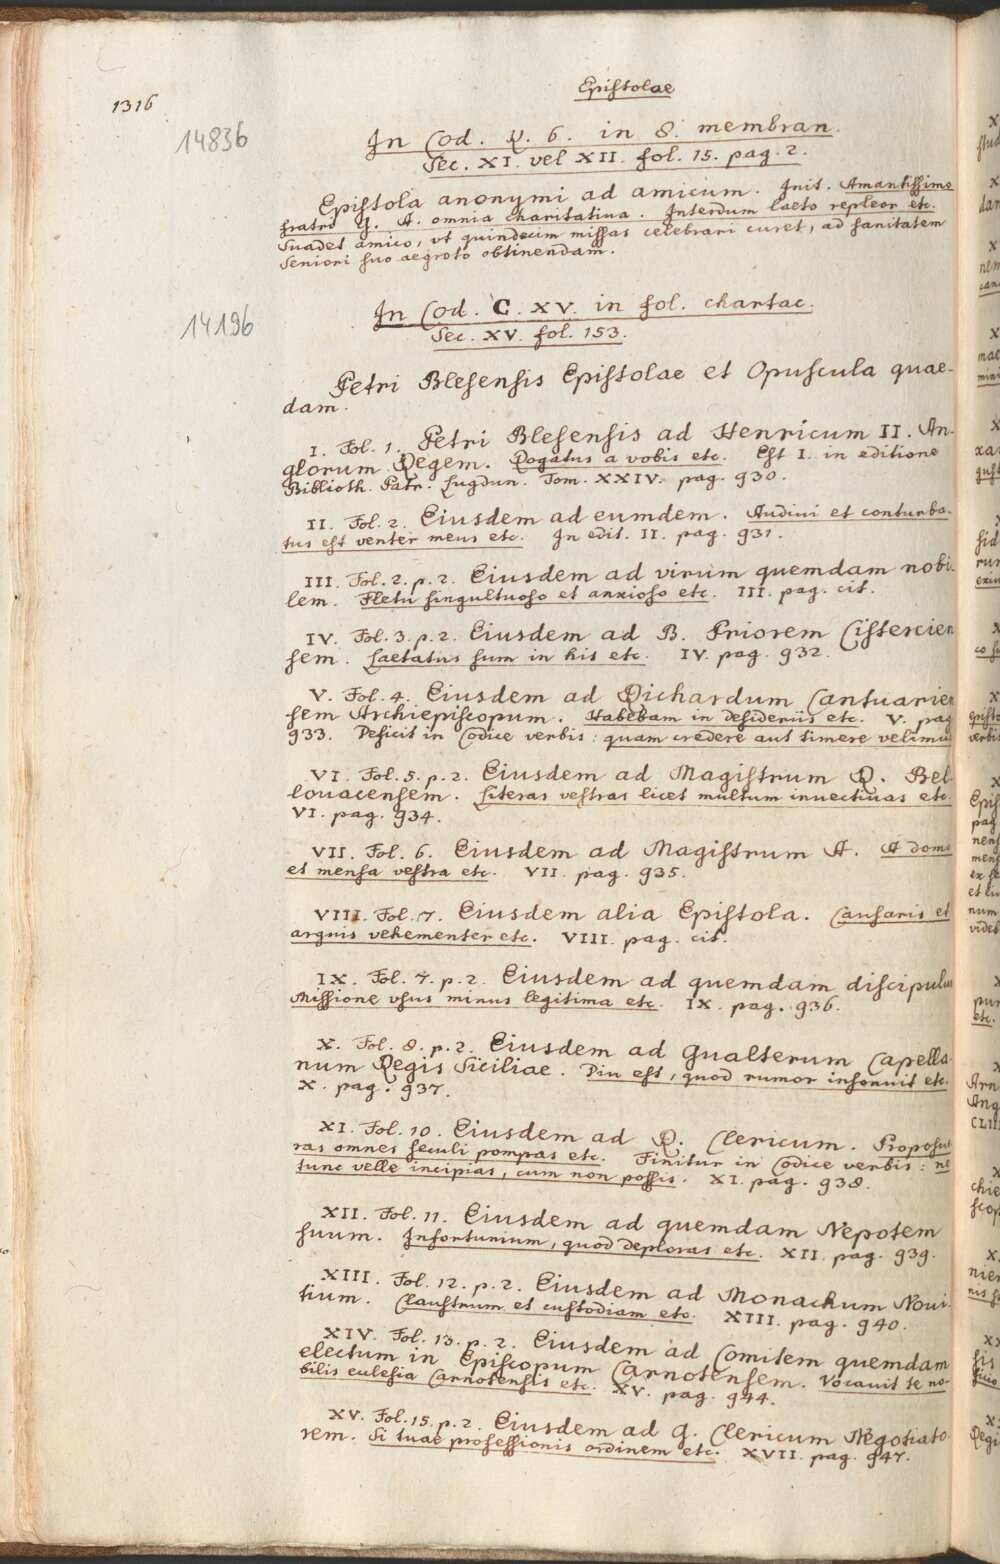 Epistolae
1316
14836
In Cod. Q. 6. in 8. membran.
Sec. XI. vel XII. fol. 15. pag. 2.
Epistola anonymi ad amicum. Init. Amantissimo
fratri G. A. omnia charitativa. Interdum laeto repleor etc.
Suadet amico, vt quindecim missas celebrari curet, ad sanitatem
Seniori suo aegroto obtinendam.
14196
In Cod. C. XV. in fol. chartac.
Sec. XV. fol. 153.
Petri Blesensis Epistolae et Opuscula quae-
dam.
I. Fol. 1. Petri Blesensis ad Henricum II. An-
glorum Regem. Rogatus a vobis etc. Est I. in editione
Biblioth. Patr. Lugdun. Tom. XXIV. pag. 930.
II. Fol. 2. Eiusdem ad eumdem. Audiui et conturba-
tus est venter meus etc. In edit. II. pag. 931.
III. Fol. 2. p. 2. Eiusdem ad virum quemdam nobi-
lem. Fletu singultuoso et anxioso etc. III. pag. cit.
IV. Fol. 3. p. 2. Eiusdem ad B. Priorem Cistercien
sem. Laetatus sum in his etc. IV. pag. 932.
V. Fol. 4. Eiusdem ad Richardum Cantuarien
sem Archiepiscopum. Habebam in desideriis etc. V. pag
933. Deficit in Codice verbis: quam credere aut timere velimus
VI. Fol. 5. p. 2. Eiusdem ad Magistrum R. Bel-
louacensem. Literas vestras licet multum inuectiuas etc
VI. pag. 934.
VII. Fol. 6. Eiusdem ad Magistrum A. A domo
et mensa vestra etc. VII. pag. 935.
VIII. Fol. 7. Eiusdem alia Epistola. Causaris et
arguis vehementer etc. VIII. pag. cit.
IX. Fol. 7. p. 2. Eiusdem ad quemdam discipulum
Missione vsus minus legitima etc. IX. pag. 936.
X. Fol. 8. p. 2. Eiusdem ad Gualterum Capella-
num Regis Siciliae. Diu est, quod rumor insonuit etc.
X. pag. 937.
XI. Fol. 10. Eiusdem ad R. Clericum. Proposue
ras omnes seculi pompas etc. Finitur in Codice verbis: ne
tunc velle incipias, cum non possis. XI. pag. 938.
XII. Fol. 11. Eiusdem ad quemdam Nepotem
suum. Infortunium, quod deploras etc. XII. pag. 939.
XIII. Fol. 12. p. 2. Eiusdem ad Monachum Noui-
tium. Claustrum et custodiam etc. XIII. pag. 940.
XIV. Fol. 13. p. 2. Eiusdem ad Comitem quemdam
electum in Episcopum Carnotensem. Vocauit te no-
bilis ecclesia Carnotensis etc. XV. pag. 944.
XV. Fol. 15. p. 2. Eiusdem ad G. Clericum Negotiato
rem. Si tuae professionis ordinem etc. XVII. pag. 947.